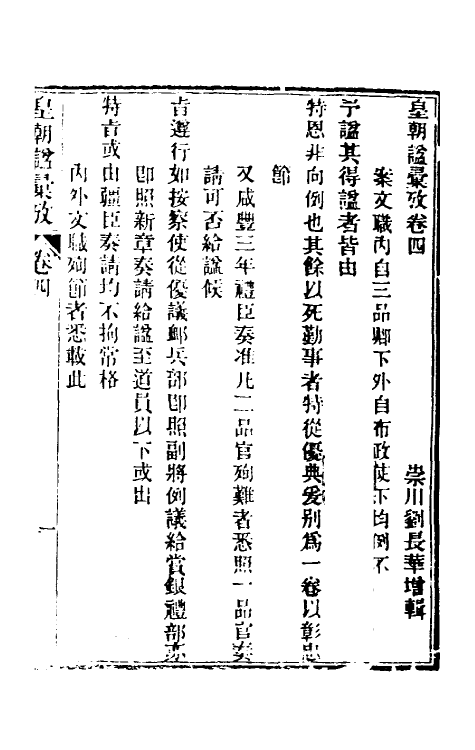 皇朝諡彙攷卷四
崇川劉長華增輯
案文職內自三品卿下外自布政使下均例不
予諡其得諡者皆由
特恩非向例也其餘以死勤事者特從優典爰別為一卷以彰忠
節
又咸豐三年禮臣奏准凡二品官殉難者悉照一品官奏
請可否給諡候
旨遵行如按察使從優議卹兵部卽照副將例議給賞銀禮部亦
卽照新章奏請給諡至道員以下或由
特旨或由疆臣奏請均不拘常格
內外文職殉節者悉載此
皇朝諡彙攷
卷四
一